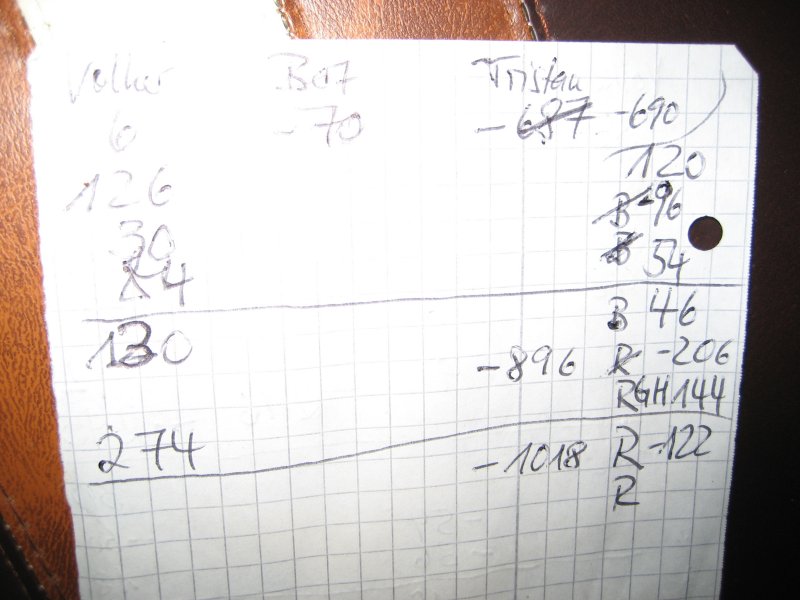 Volker Bo7 Tristan
6 -70 -687 -690
126 120
30 B -96
84 B 54
130 B 46
-896 R -206
RGH 144
274 -1018 R -122
R